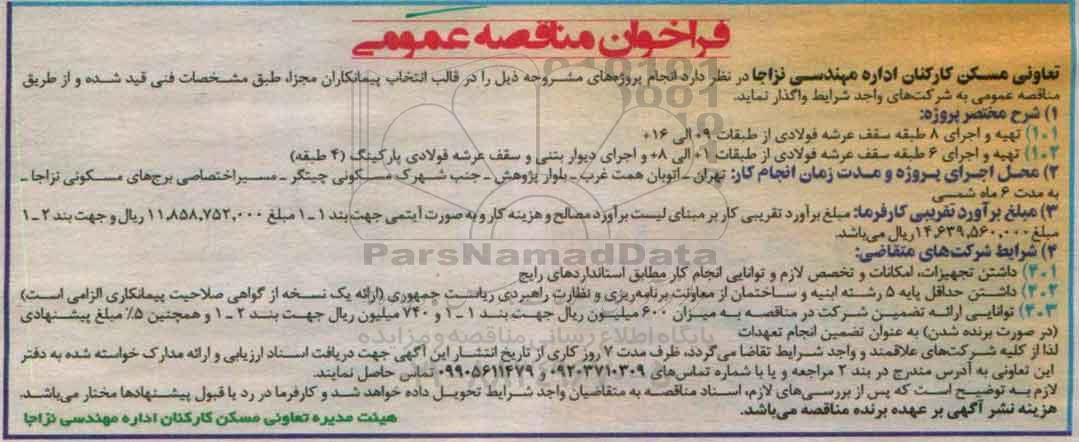 فراخوان مناقصه عمومی
تعاونی مسکن کارکنان اداره مهندسی نزاجا در نظر دارد انجام پروژه‌های مشروحه ذیل را در قالب انتخاب پیمانکاران مجزا، طبق مشخصات فنی قید شده و از طریق
مناقصه عمومی به شرکت‌های واجد شرایط واگذار نماید.
۱) شرح مختصر پروژه:
۱-۱) تهیه و اجرای ۸ طبقه سقف عرشه فولادی از طبقات ۹+ الی ۱۶+
۱-۲) تهیه و اجرای ۶ طبقه سقف عرشه فولادی از طبقات ۱+ الی ۸+ و اجرای دیوار بتنی و سقف عرشه فولادی پارکینگ (۴ طبقه)
۲) محل اجرای پروژه و مدت زمان انجام کار: تهران ـ اتوبان همت غرب ـ بلوار پژوهش ـ جنب شهرک مسکونی چیتگر ـ مسیر اختصاصی برج‌های مسکونی نزاجا ـ
به مدت ۶ ماه شمسی
۳) مبلغ برآورد تقریبی کارفرما: مبلغ برآورد تقریبی کار بر مبنای لیست برآورد مصالح و هزینه کار و به صورت آیتمی جهت بند ۱ ـ ۱ مبلغ ۱۱,۸۵۸,۷۵۲,۰۰۰ ریال و جهت بند ۲ ـ ۱
مبلغ ۱۴,۶۳۹,۵۶۰,۰۰۰ ریال می‌باشد.
۴) شرایط شرکت‌های متقاضی:
۴-۱) داشتن تجهیزات، امکانات و تخصص لازم و توانایی انجام کار مطابق استانداردهای رایج
۴-۲) داشتن حداقل پایه ۵ رشته ابنیه و ساختمان از معاونت برنامه‌ریزی و نظارت راهبردی ریاست جمهوری (ارائه یک نسخه از گواهی صلاحیت پیمانکاری الزامی است)
۴-۳) توانایی ارائه تضمین شرکت در مناقصه به میزان ۶۰۰ میلیون ریال جهت بند ۱ ـ ۱ و ۷۴۰ میلیون ریال جهت بند ۲ ـ ۱ و همچنین ۵٪ مبلغ پیشنهادی
(در صورت برنده شدن) به عنوان تضمین انجام تعهدات
لذا از کلیه شرکت‌های علاقمند و واجد شرایط تقاضا می‌گردد، ظرف مدت ۷ روز کاری از تاریخ انتشار این آگهی جهت دریافت اسناد ارزیابی و ارائه مدارک خواسته شده به دفتر
این تعاونی به آدرس مندرج در بند ۲ مراجعه و یا با شماره تماس‌های ۰۹۲۰۳۷۱۰۳۰۹ و ۰۹۹۰۵۶۱۱۴۷۹ تماس حاصل نمایند.
لازم به توضیح است که پس از بررسی‌های لازم، اسناد مناقصه به متقاضیان واجد شرایط تحویل داده خواهد شد و کارفرما در رد یا قبول پیشنهادها مختار می‌باشد.
هزینه نشر آگهی بر عهده برنده مناقصه می‌باشد.
هیئت مدیره تعاونی مسکن کارکنان اداره مهندسی نزاجا
ParsNamadData
پایگاه اطلاع رسانی مناقصه و مزایده